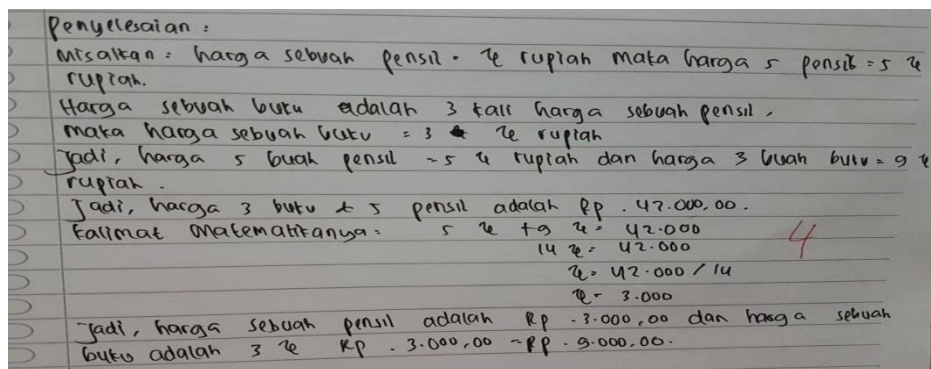 Penyelesaian :
Misalkan : harga sebuah pensil = x rupiah maka harga 5 pensil = 5 x
rupiah.
Harga sebuah buku adalah 3 kali harga sebuah pensil,
maka harga sebuah buku = 3 x rupiah
Jadi, harga 5 buah pensil = 5 x rupiah dan harga 3 buah buku = 9 x
rupiah.
Jadi, harga 3 buku + 5 pensil adalah Rp . 42.000,00.
Kalimat Matematikanya = 5 x + 9 x = 42.000
4
14 x = 42.000
x = 42.000 / 14
x = 3.000
Jadi, harga sebuah pensil adalah Rp . 3.000,00 dan harga sebuah
buku adalah 3 x Rp . 3.000,00 = Rp . 9.000,00.